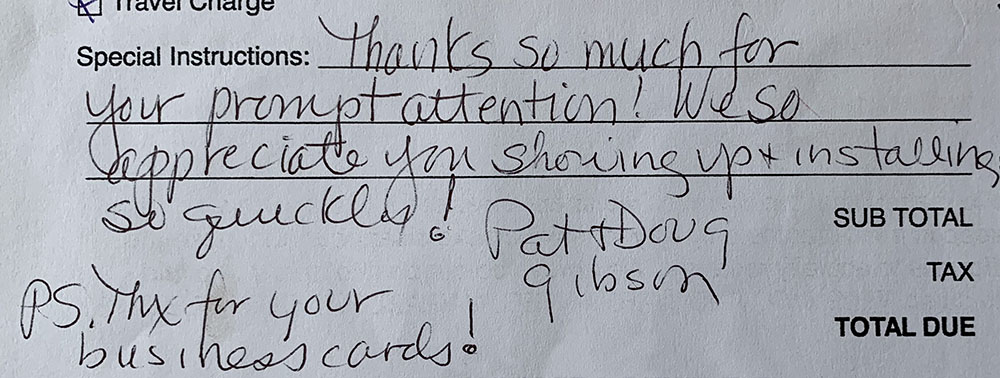 Travel Charge
Special Instructions: Thanks so much for
your prompt attention! We so
appreciate you showing up + installing
so quickly!
Pat + Doug
Gibson
SUB TOTAL
TAX
TOTAL DUE
PS. Thx for your
business cards!